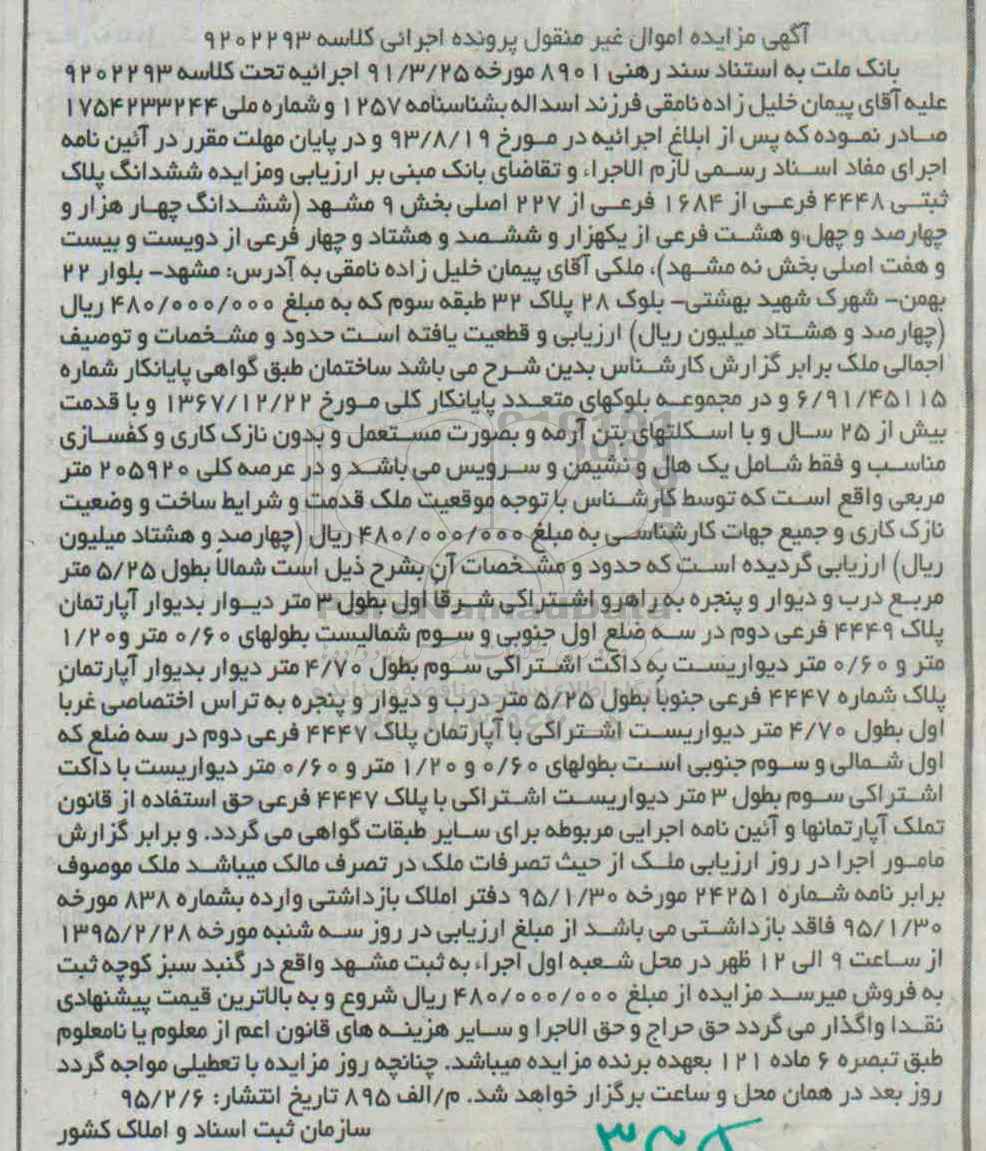 آگهی مزایده اموال غیر منقول پرونده اجرائی کلاسه ۹۲۰۲۲۹۳
بانک ملت به استناد سند رهنی ۸۹۰۱ مورخه ۹۱/۳/۲۵ اجرائیه تحت کلاسه ۹۲۰۲۲۹۳
علیه آقای پیمان خلیل زاده نامقی فرزند اسداله بشناسنامه ۱۲۵۷ و شماره ملی ۱۷۵۴۲۳۳۲۴۴
صادر نموده که پس از ابلاغ اجرائیه در مورخ ۹۳/۸/۱۹ و در پایان مهلت مقرر در آئین نامه
اجرای مفاد اسناد رسمی لازم الاجراء و تقاضای بانک مبنی بر ارزیابی ومزایده ششدانگ پلاک
ثبتی ۴۴۴۸ فرعی از ۱۶۸۴ فرعی از ۲۲۷ اصلی بخش ۹ مشهد (ششدانگ چهار هزار و
چهارصد و چهل و هشت فرعی از یکهزار و ششصد و هشتاد و چهار فرعی از دویست و بیست
و هفت اصلی بخش نه مشهد)، ملکی آقای پیمان خلیل زاده نامقی به آدرس: مشهد- بلوار ۲۲
بهمن- شهرک شهید بهشتی- بلوک ۲۸ پلاک ۳۲ طبقه سوم که به مبلغ ۴۸۰/۰۰۰/۰۰۰ ریال
(چهارصد و هشتاد میلیون ریال) ارزیابی و قطعیت یافته است حدود و مشخصات و توصیف
اجمالی ملک برابر گزارش کارشناس بدین شرح می باشد ساختمان طبق گواهی پایانکار شماره
۶/۹۱/۴۵۱۱۵ و در مجموعه بلوکهای متعدد پایانکار کلی مورخ ۱۳۶۷/۱۲/۲۲ و با قدمت
بیش از ۲۵ سال و با اسکلتهای بتن آرمه و بصورت مستعمل و بدون نازک کاری و کفسازی
مناسب و فقط شامل یک هال و نشیمن و سرویس می باشد و در عرصه کلی ۲۰۵۹۲۰ متر
مربعی واقع است که توسط کارشناس با توجه موقعیت ملک قدمت و شرایط ساخت و وضعیت
نازک کاری و جمیع جهات کارشناسی به مبلغ ۴۸۰/۰۰۰/۰۰۰ ریال (چهارصد و هشتاد میلیون
ریال) ارزیابی گردیده است که حدود و مشخصات آن بشرح ذیل است شمالاً بطول ۵/۲۵ متر
مربع درب و دیوار و پنجره به راهرو اشتراکی شرقا اول بطول ۳ متر دیوار بدیوار آپارتمان
پلاک ۴۴۴۹ فرعی دوم در سه ضلع اول جنوبی و سوم شمالیست بطولهای ۰/۶۰ متر و۱/۲۰
متر و ۰/۶۰ متر دیواریست به داکت اشتراکی سوم بطول ۴/۷۰ متر دیوار بدیوار آپارتمان
پلاک شماره ۴۴۴۷ فرعی جنوباً بطول ۵/۲۵ متر درب و دیوار و پنجره به تراس اختصاصی غربا
اول بطول ۴/۷۰ متر دیواریست اشتراکی با آپارتمان پلاک ۴۴۴۷ فرعی دوم در سه ضلع که
اول شمالی و سوم جنوبی است بطولهای ۰/۶۰ و ۱/۲۰ متر و ۰/۶۰ متر دیواریست با داکت
اشتراکی سوم بطول ۳ متر دیواریست اشتراکی با پلاک ۴۴۴۷ فرعی حق استفاده از قانون
تملک آپارتمانها و آئین نامه اجرایی مربوطه برای سایر طبقات گواهی می گردد. و برابر گزارش
مامور اجرا در روز ارزیابی ملک از حیث تصرفات ملک در تصرف مالک میباشد ملک موصوف
برابر نامه شماره ۲۴۲۵۱ مورخه ۹۵/۱/۳۰ دفتر املاک بازداشتی وارده بشماره ۸۳۸ مورخه
۹۵/۱/۳۰ فاقد بازداشتی می باشد از مبلغ ارزیابی در روز سه شنبه مورخه ۱۳۹۵/۲/۲۸
از ساعت ۹ الی ۱۲ ظهر در محل شعبه اول اجراء به ثبت مشهد واقع در گنبد سبز کوچه ثبت
به فروش میرسد مزایده از مبلغ ۴۸۰/۰۰۰/۰۰۰ ریال شروع و به بالاترین قیمت پیشنهادی
نقدا واگذار می گردد حق حراج و حق الاجرا و سایر هزینه های قانون اعم از معلوم یا نامعلوم
طبق تبصره ۶ ماده ۱۲۱ بعهده برنده مزایده میباشد. چنانچه روز مزایده با تعطیلی مواجه گردد
روز بعد در همان محل و ساعت برگزار خواهد شد. م/الف ۸۹۵ تاریخ انتشار: ۹۵/۲/۶
سازمان ثبت اسناد و املاک کشور